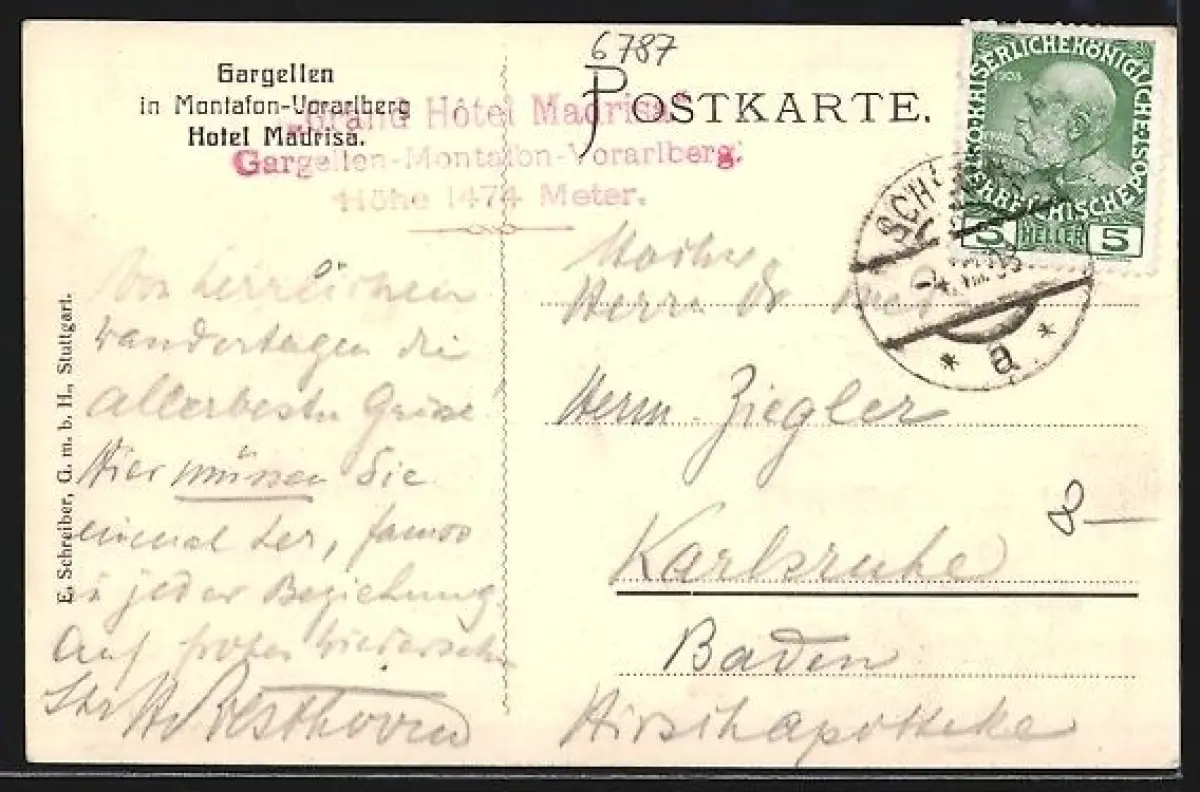 Gargellen
in Montafon-Vorarlberg
Hotel Madrisa.
6787
POSTKARTE.
"Grand Hôtel Madrisa"
Gargellen-Montafon-Vorarlberg.
Höhe 1474 Meter.
1908
5 HELLER 5
SCH
a
E. Schreiber, G. m. b. H., Stuttgart.
Von herrlichen
Wandertagen die
allerbesten Grüsse!
Hier müssen Sie
einmal her, famos
in jeder Beziehung.
Auf frohes Wiedersehn
Ihr
Herrn Dr
Herrn Ziegler
Karlsruhe
Baden
Hirschapotheke
8 —